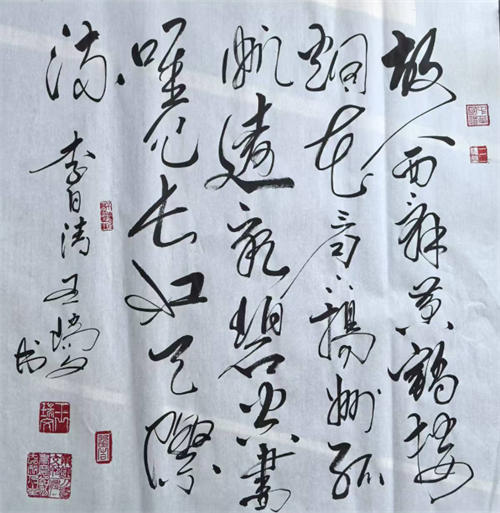 故人西辞黄鹤楼
烟花三月下揚州孤
帆遠影碧空盡
唯见长江天際
流
李白诗 王瑞 书